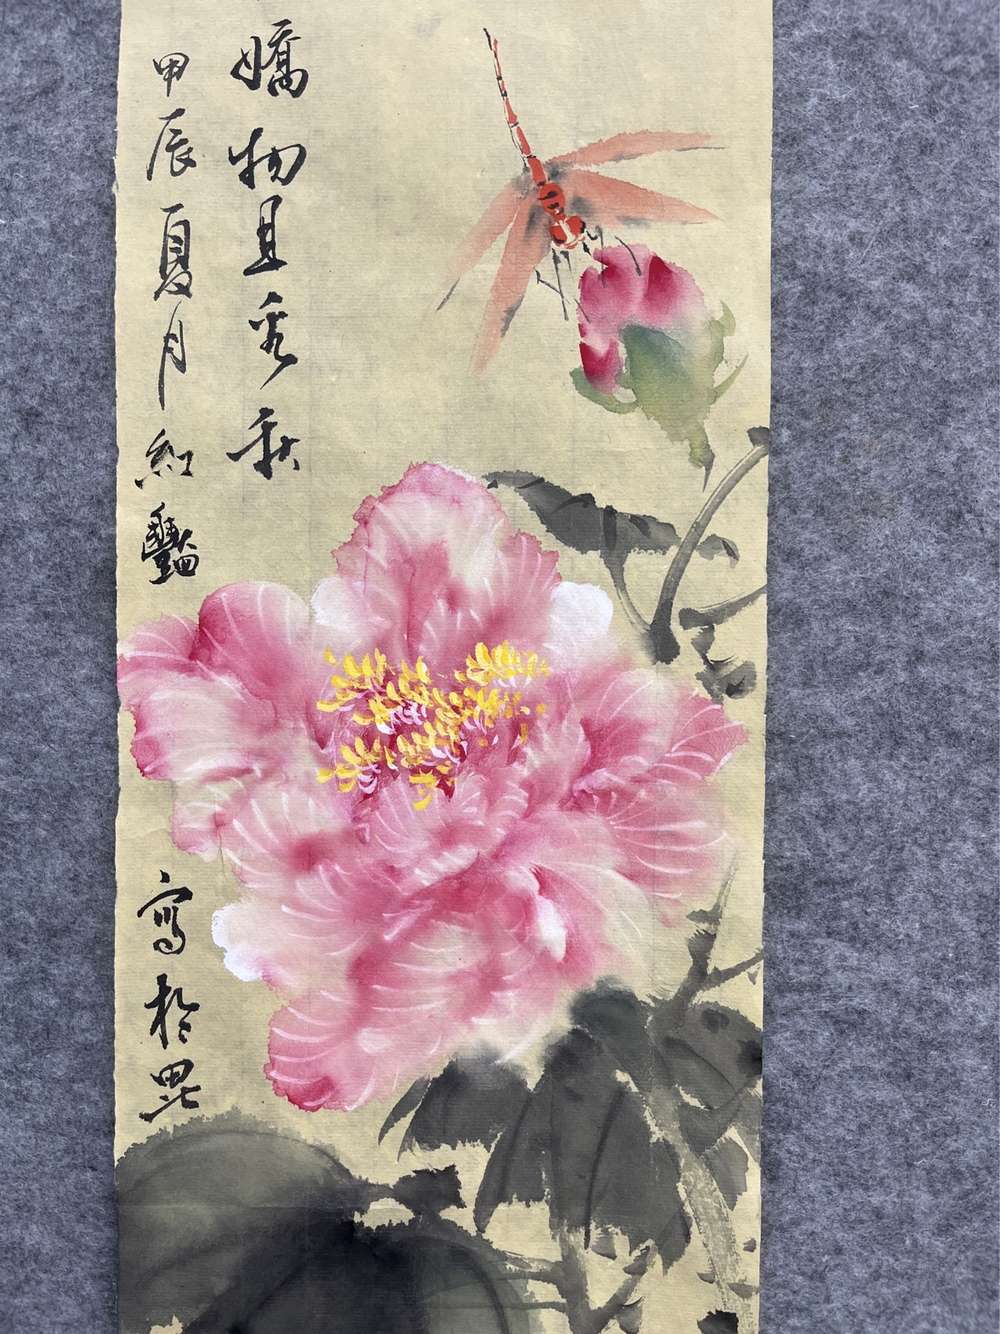 嬌物且秋
甲辰夏月紅豔寫於毘